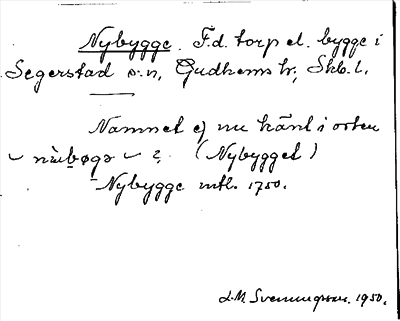 Nybygge. F.d. torp el. bygge i
Segerstad sn, Gudhems hd, Skb. l.
Namnet ej nu känt i orten
(Nybygget)
Nybygge mtl. 1750.
1950.